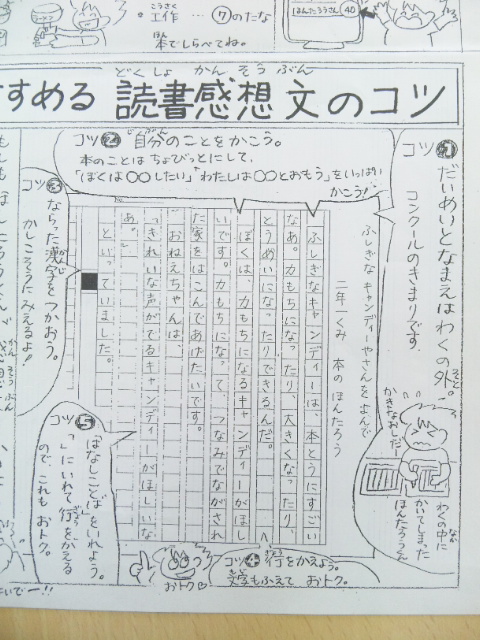 工作…⑦のたな
本でしらべてね。
はんたろうさん 40
すすめる 読書感想文のコツ
どくしょ かんそうぶん
コツ1 だいめいとなまえはわくの外。
コンクールのきまりです。
かきなおしだー
わくの中に
かいてしまった
ほんたろうくん
コツ2 自分のことをかこう。
本のことはちょびっとにして、
「ぼくは〇〇したい」「わたしは〇〇とおもう」をいっぱい
かこう!
ふしぎなキャンディーやさんをよんで
二年一くみ 本のほんたろう
ふしぎなキャンディーは、本とうにすごい
なあ。力もちになったり、大きくなったり、
とうめいになったりできるんだ。
ぼくは、力もちになるキャンディーがほし
いです。力もちになって、つなみでながされ
た家をはこんであげたいです。
おねえちゃんは、
「きれいな声がでるキャンディーがほしいな
あ。」
といっていました。
コツ3
ならった漢字を
つかおう。
かしこそうにみえるよ!
コツ4 行をかえよう。
文字もふえて おトク。
コツ5
「はなしことば」をいれよう。
「」にいれて行をかえる
ので、これも おトク。
おトク♡